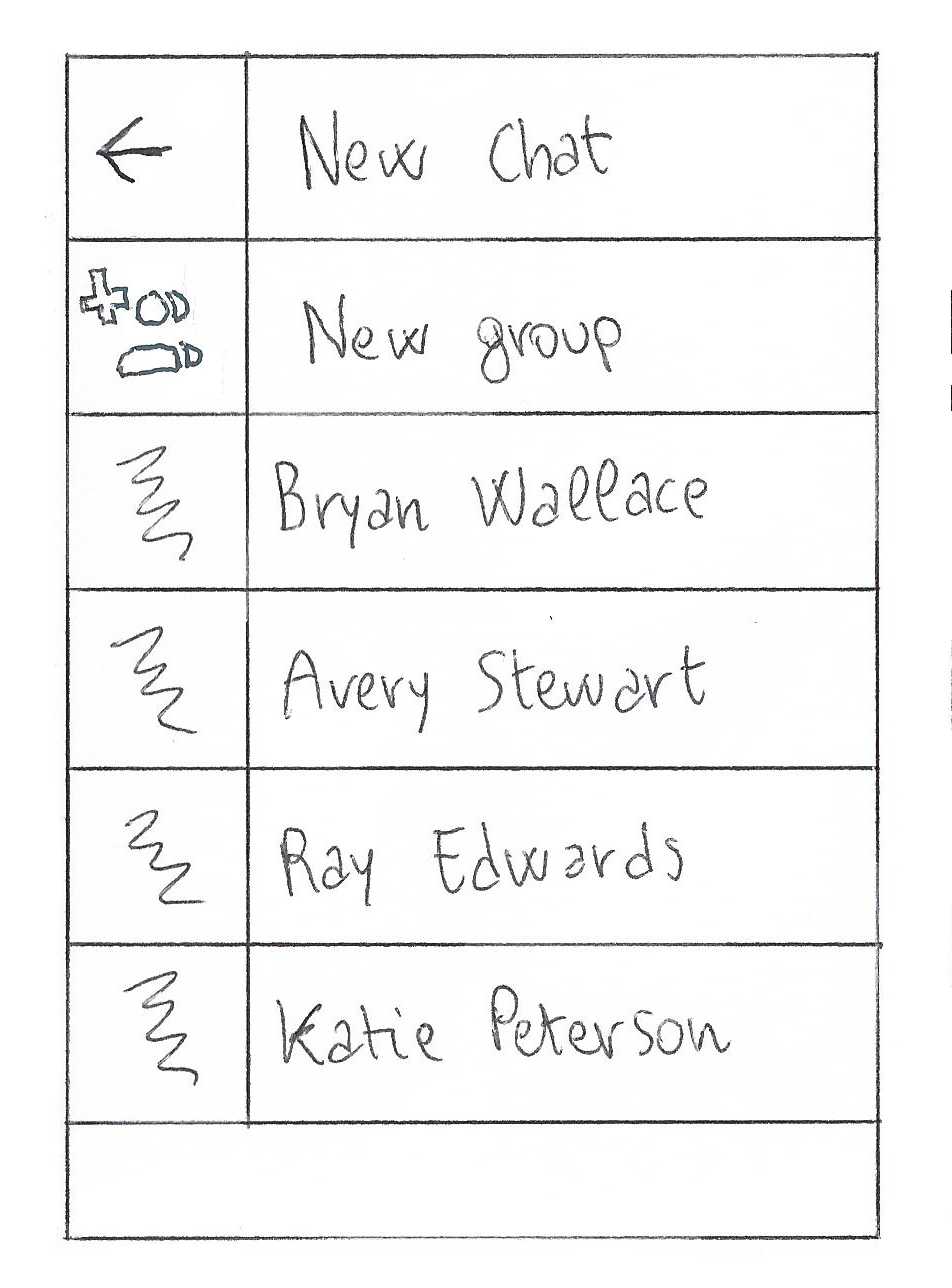 New Chat
New group
Bryan Wallace
Avery Stewart
Ray Edwards
Katie Peterson